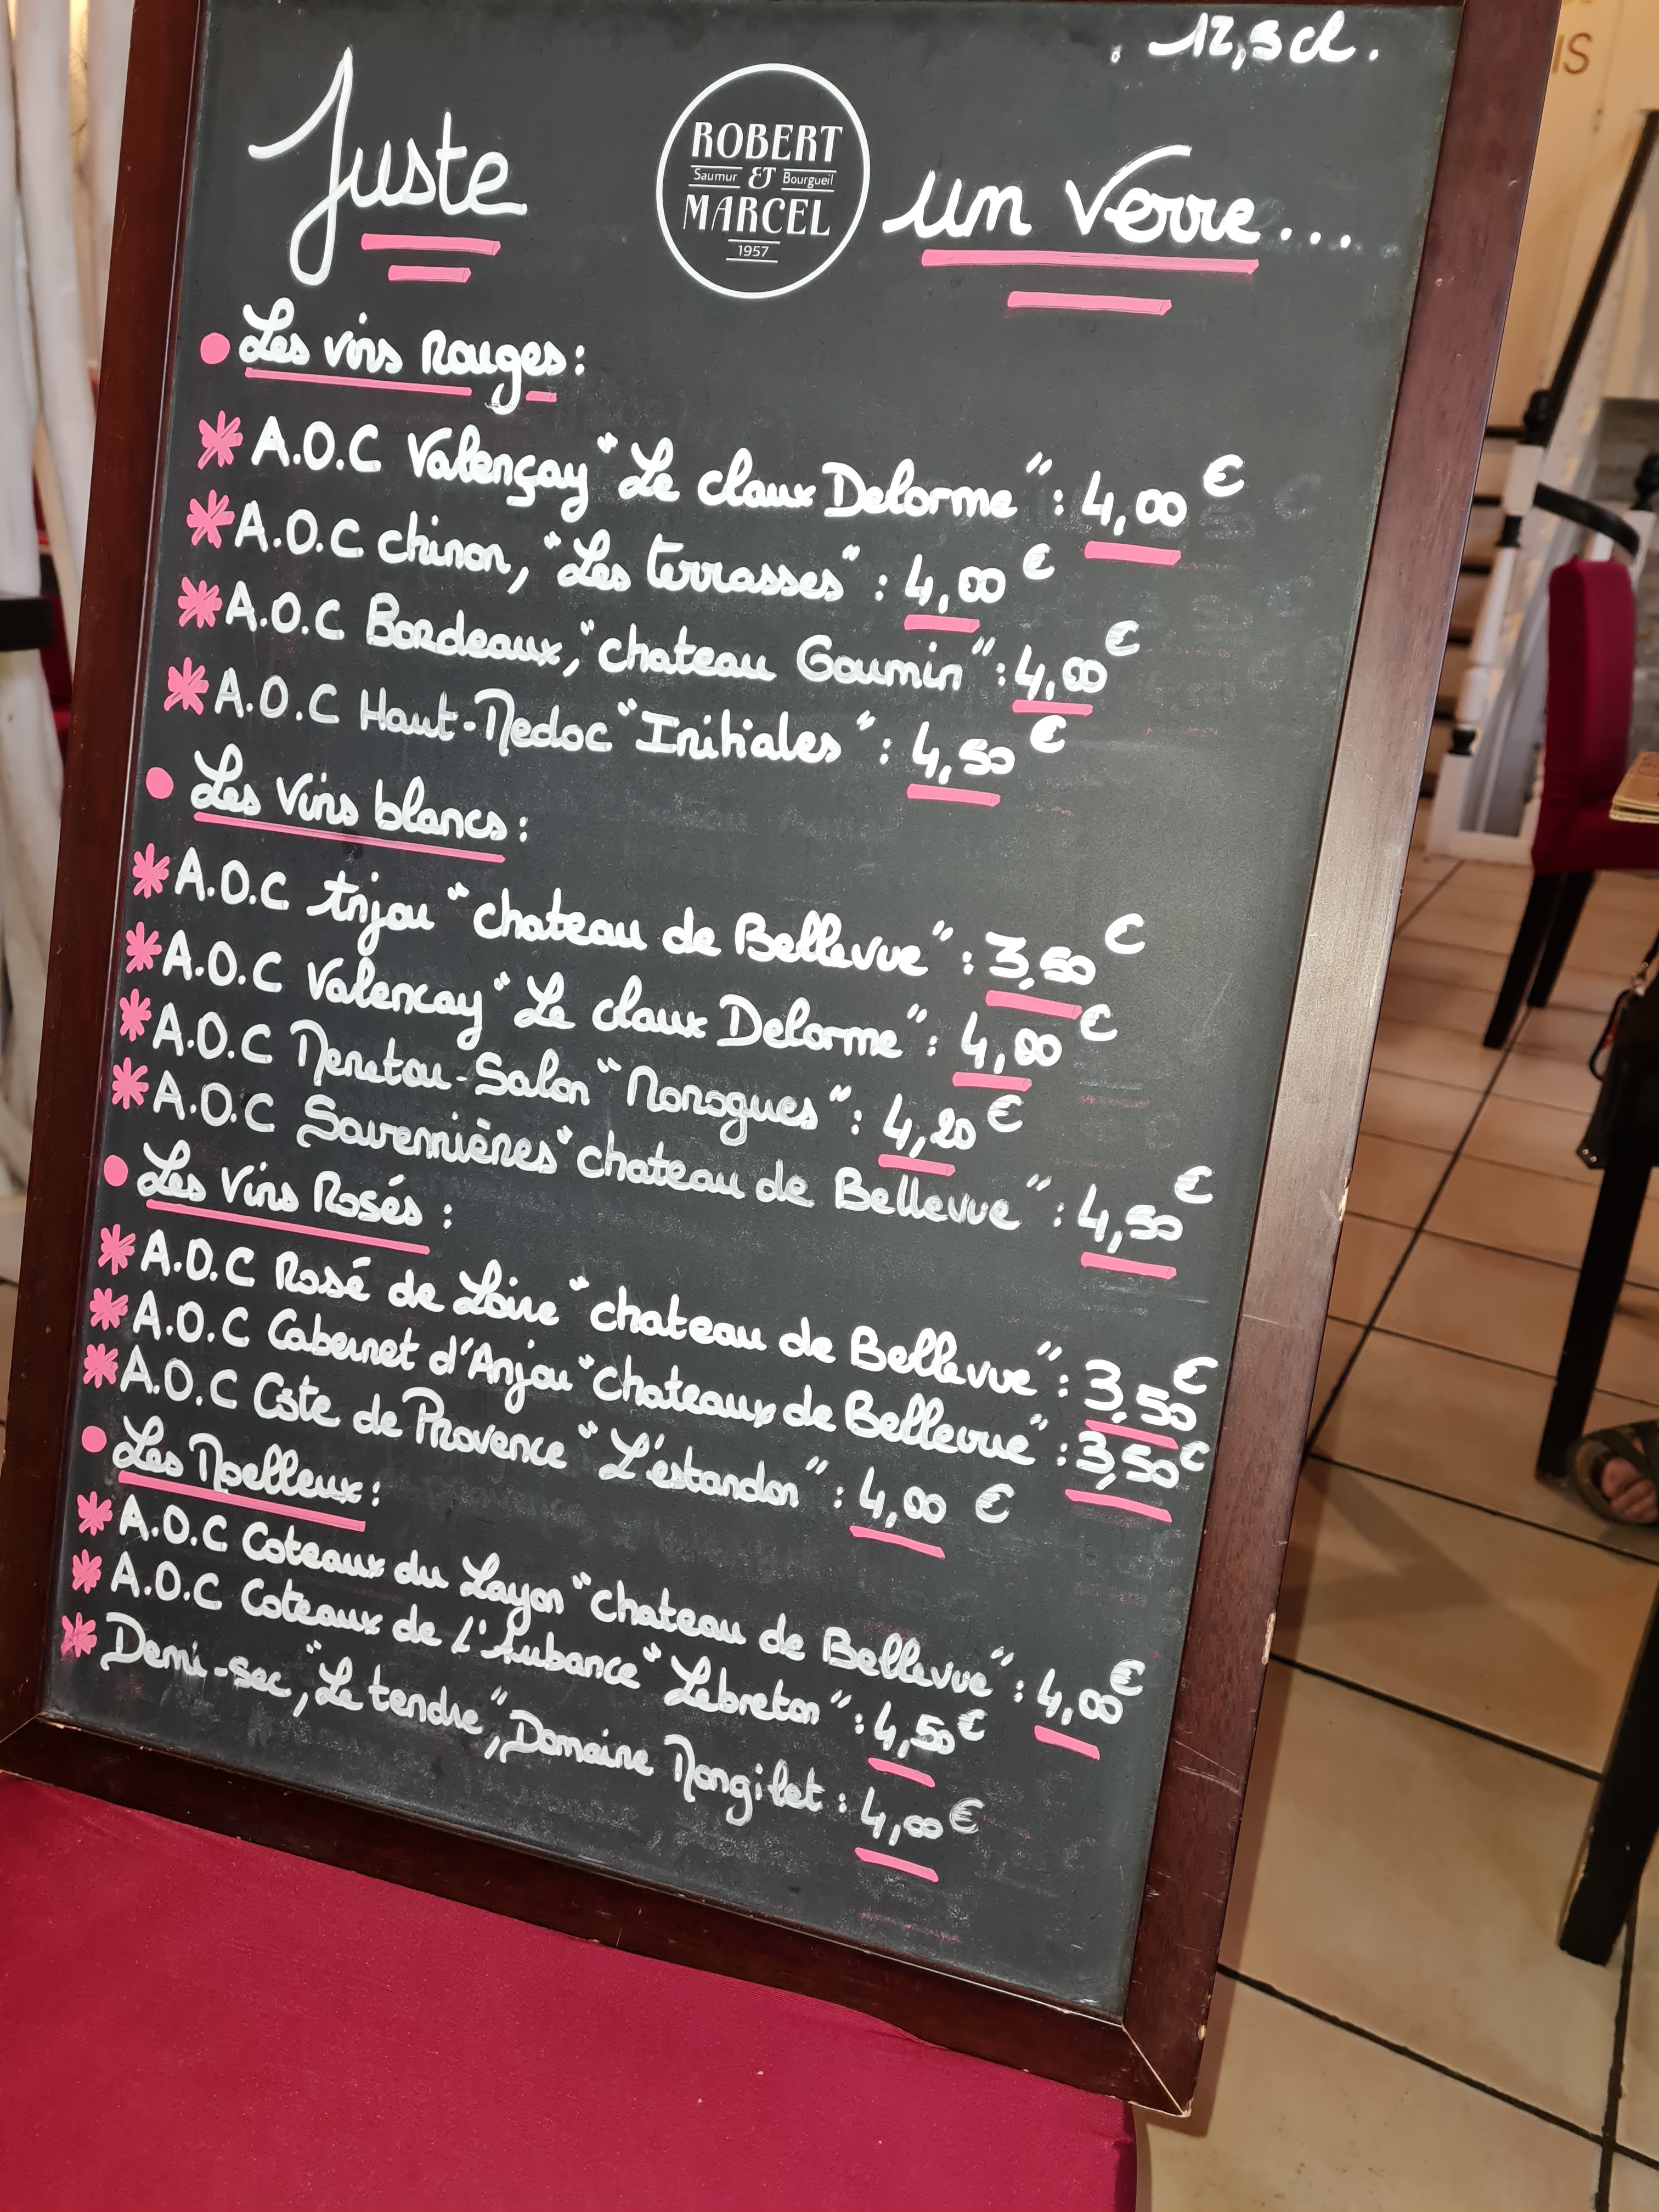 : 12,5 cl.
Juste
ROBERT
Saumur & Bourgueil
MARCEL
1957
un Verre...
Les vins Rouges :
A.O.C Valençay "Le claux Delorme" : 4,00 €
A.O.C chinon, "Les terrasses" : 4,00 €
A.O.C Bordeaux, "chateau Goumin" : 4,00 €
A.O.C Haut-Medoc "Initiales" : 4,50 €
Les Vins blancs :
A.O.C Anjou "chateau de Bellevue" : 3,50 €
A.O.C Valencay "Le claux Delorme" : 4,00 €
A.O.C Menetou-Salon "Morogues" : 4,20 €
A.O.C Savennières "chateau de Bellevue" : 4,50 €
Les Vins Rosés :
A.O.C Rosé de Loire "chateau de Bellevue" : 3,50 €
A.O.C Cabernet d'Anjou "chateaux de Bellevue" : 3,50 €
A.O.C Côte de Provence "L'estandon" : 4,00 €
Les Moelleux :
A.O.C Coteaux du Layon "chateau de Bellevue" : 4,00 €
A.O.C Coteaux de l'Aubance "Lebreton" : 4,50 €
Demi-sec, "Le tendre", Domaine Mongilet : 4,00 €
IS